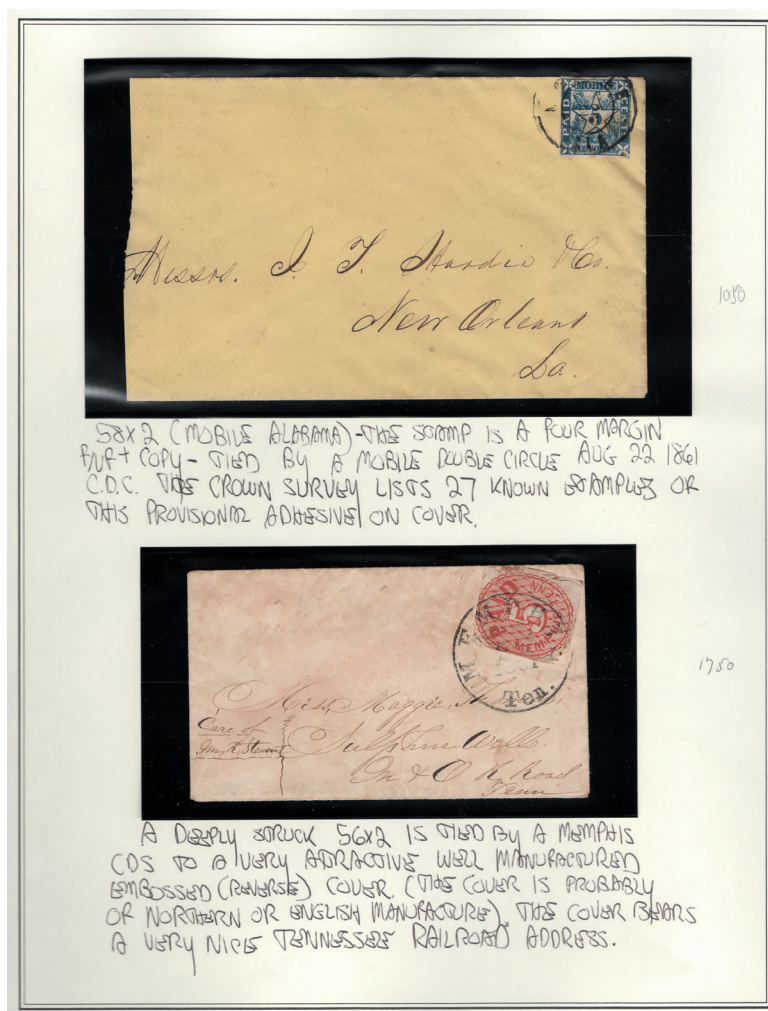 MOBILE
PAID
CENTS
5
ALA
Messrs. I. T. Hardie & Co.
New Orleans
La.
1050
58X2 (MOBILE ALABAMA) - THE STAMP IS A FOUR MARGIN
F/VF+ COPY - TIED BY A MOBILE DOUBLE CIRCLE AUG 22 1861
C.D.C. THE CROWN SURVEY LISTS 27 KNOWN EXAMPLES OF
THIS PROVISIONAL ADHESIVE ON COVER.
PAID
5
MEMPHIS TENN
Ten.
1750
Miss Maggie
Care of
Wm. R.
Sulphur Wells
M & O R Road
Tenn
A DEEPLY STRUCK 56X2 IS TIED BY A MEMPHIS
CDS TO A VERY ATTRACTIVE WELL MANUFACTURED
EMBOSSED (REVERSE) COVER. (THE COVER IS PROBABLY
OF NORTHERN OR ENGLISH MANUFACTURE). THE COVER BEARS
A VERY NICE TENNESSEE RAILROAD ADDRESS.